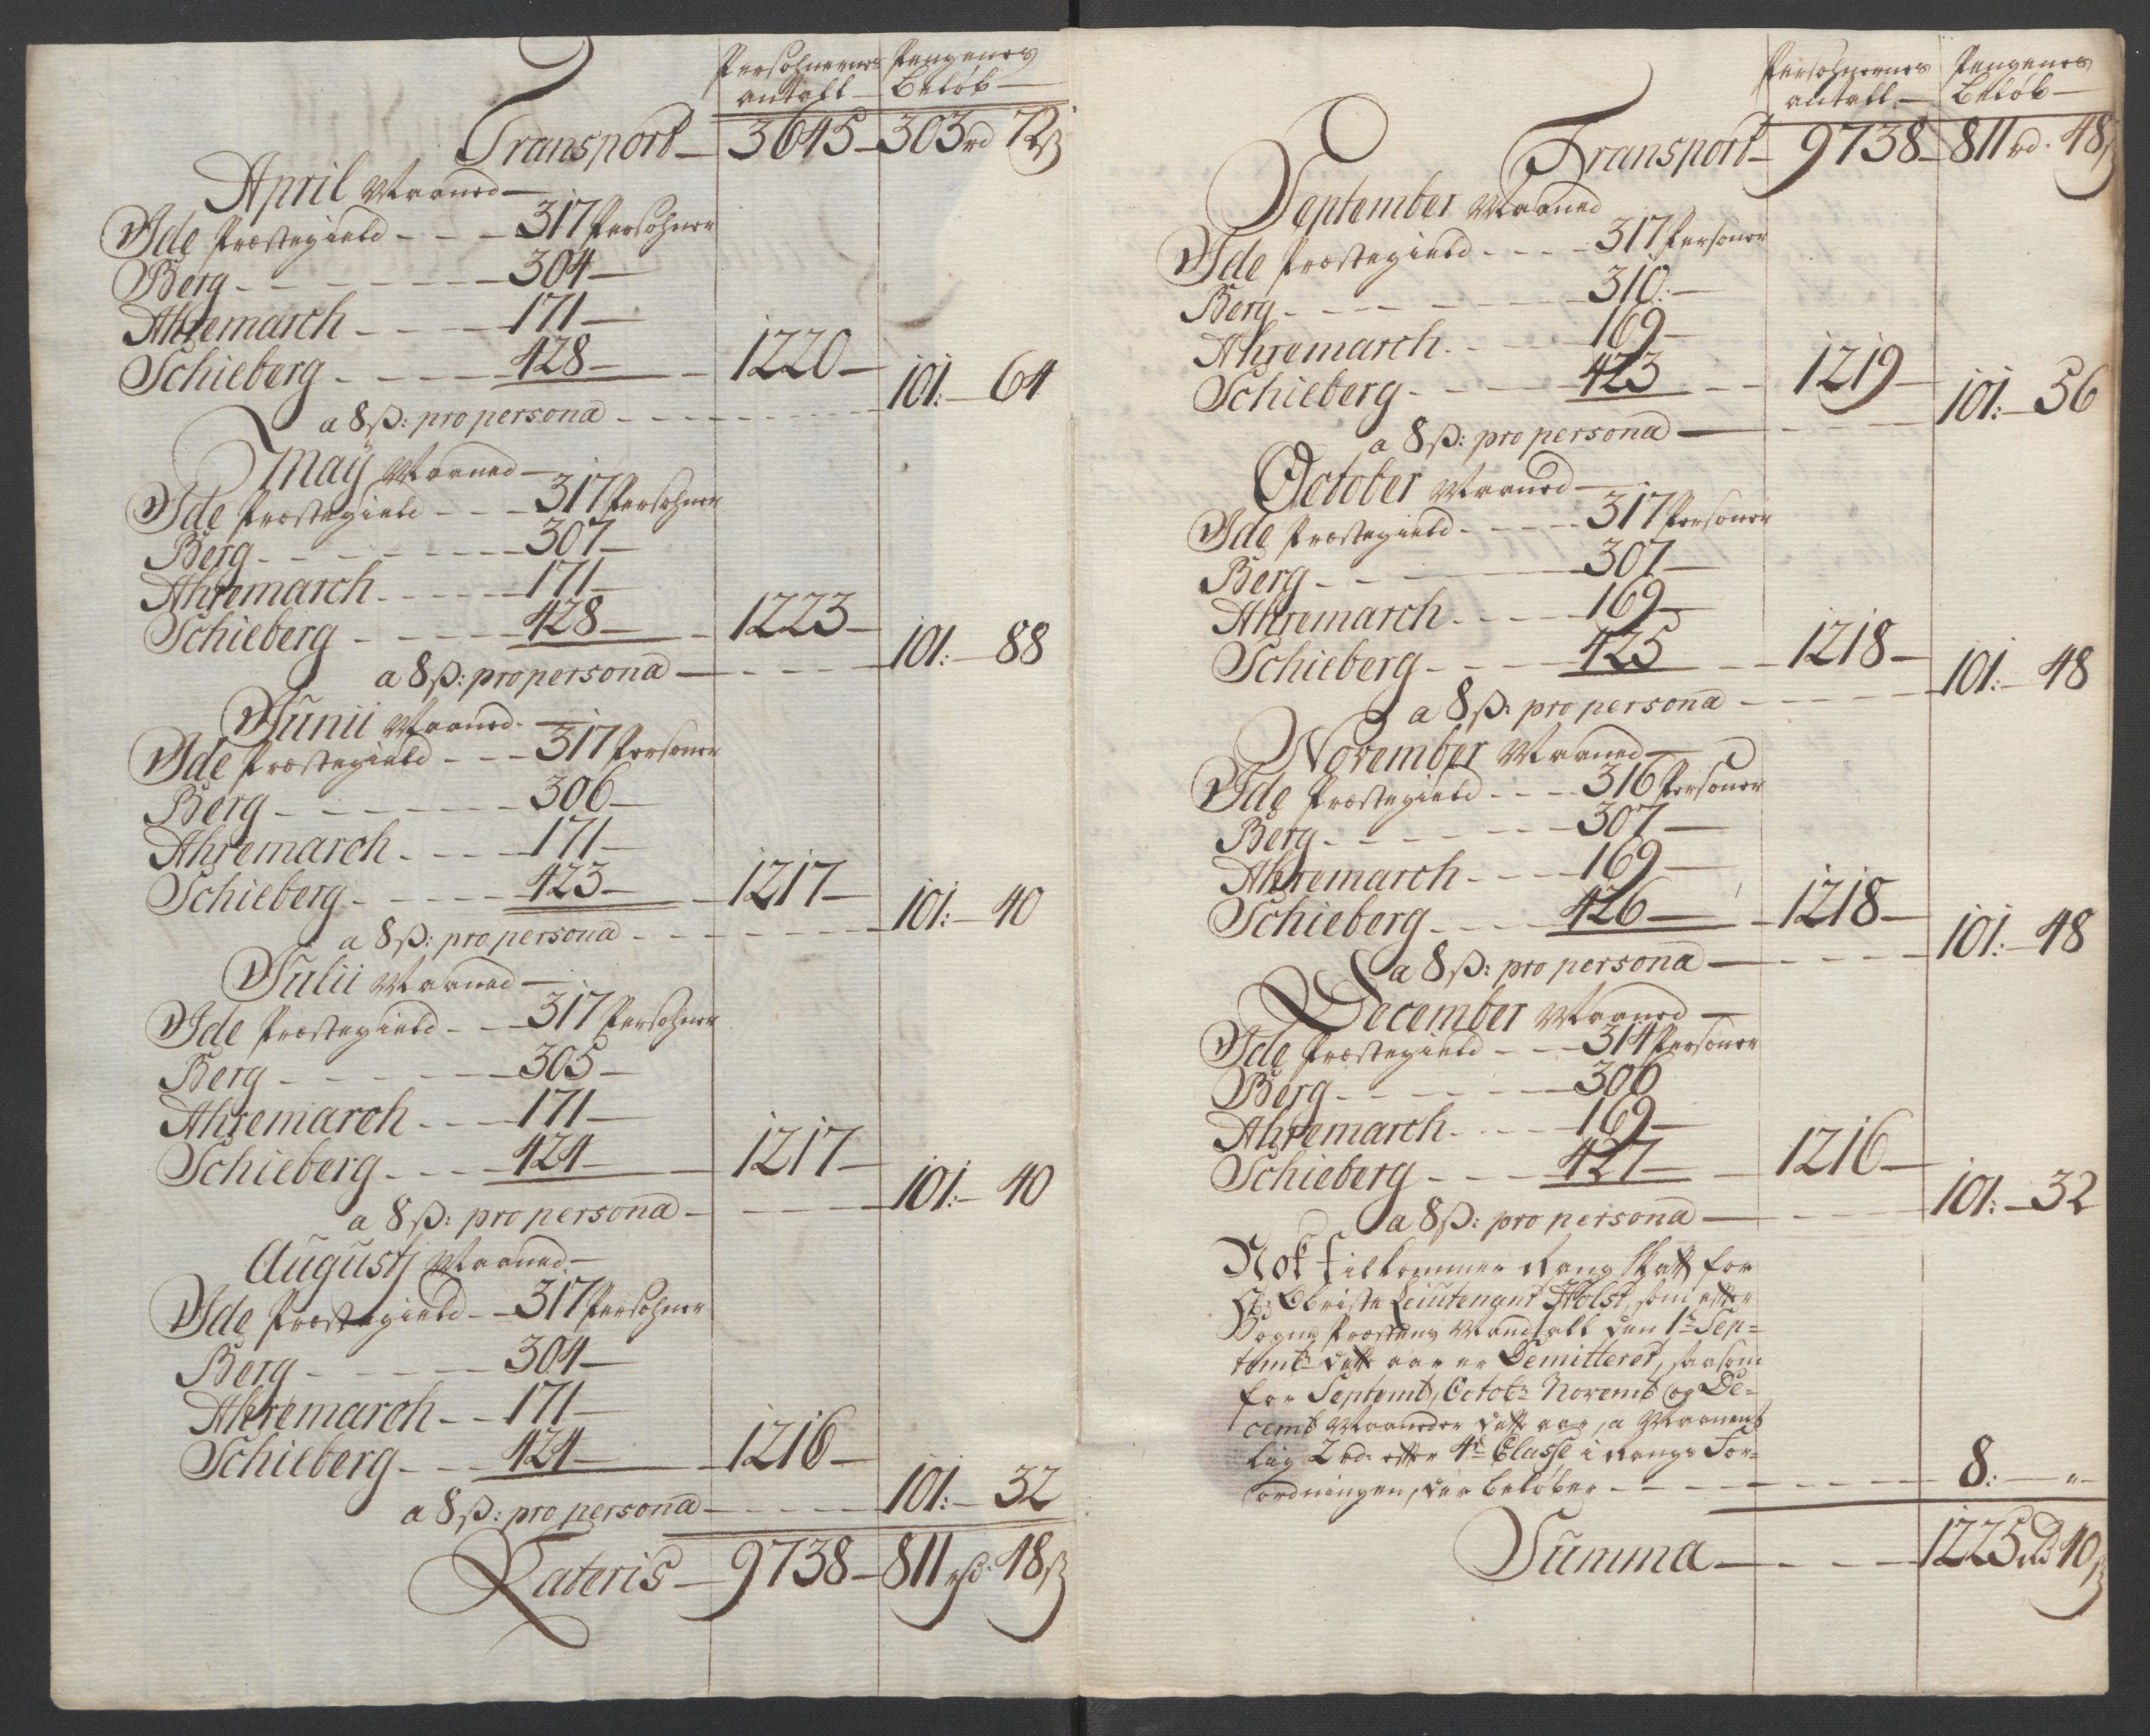 Persohnernes Pengenes
antall — Beløb —
Transport — 3645 — 303 rd 72 ß
April Maaned —
Ide Præstegield - - - 317 Persohner
Berg - - - - - - - 304 —
Ahremarch - - - - 171 —
Schieberg - - - - 428 — 1220 —
a 8 ß: pro persona - - - - - 101: — 64
May Maaned —
Ide Præstegield - - - 317 Persohner
Berg - - - - - - - 307 —
Ahremarch - - - - 171 —
Schieberg - - - - 428 — 1223 —
a 8 ß: pro persona — - - - 101: — 88
Junii Maaned —
Ide Præstegield - - - 317 Personer
Berg - - - - - - 306 —
Ahremarch - - - - 171 —
Schieberg - - - - 423 — 1217 —
a 8 ß: pro persona - - - - - 101: — 40
Julii Maaned —
Ide Præstegield - - - 317 Persohner
Berg - - - - - - 305 —
Ahremarch - - - 171 —
Schieberg - - - - 424 — 1217 —
a 8 ß: pro persona - - - - 101: — 40
Augustj Maaned —
Ide Præstegield - - 317 Persohner
Berg - - - - - - 304 —
Ahremarch - - 171 —
Schieberg - - - 424 — 1216 —
a 8 ß: pro persona - - - - 101: — 32
Lateris — 9738 — 811 rd. 48 ß
Persohnernes Pengenes
antall — Beløb —
Transport — 9738 — 811 rd. 48 ß
September Maaned
Ide Præstegield - - - - 317 Personer
Berg - - - - - - 310: —
Ahremarch - - - - 169 —
Schieberg - - - - 423 - - 1219 —
a 8 ß: pro persona — - - - 101: — 56
October Maaned —
Ide Præstegield - - - - 317 Personer
Berg - - - - - 307 —
Ahremarch - - - - 169 —
Schieberg - - - - 425 — 1218 —
a 8 ß: pro persona - - - - 101: — 48
November Maaned —
Ide Præstegield - - - 316 Personer
Berg - - - - - - 307 —
Ahremarch - - - 169 —
Schieberg - - - - 426 — 1218 —
a 8 ß: pro persona — - - - 101: — 48
December Maaned —
Ide Præstegield - - - 314 Personer
Berg - - - - - - 306
Ahremarch - - - - 169 —
Schieberg - - - - 427 — 1216 —
a 8 ß: pro persona — - - - 101: — 32
Nok tilkommer Rang Skatt for
Hr: Obriste Leiutenant Holst, som efter
Sogne Præstens Mandtall den 1te Sep=
temb: dette aar er Demitteret, saasom
for Septemb, Octob: Novemb og De=
cemb Maaneder dette aar, a Maanent
lig 2 rd. efter 4de Classe i Rangs For=
ordningen, der beløber - - - - - 8: — „ —
Summa — - - - 1225 rd 40 ß